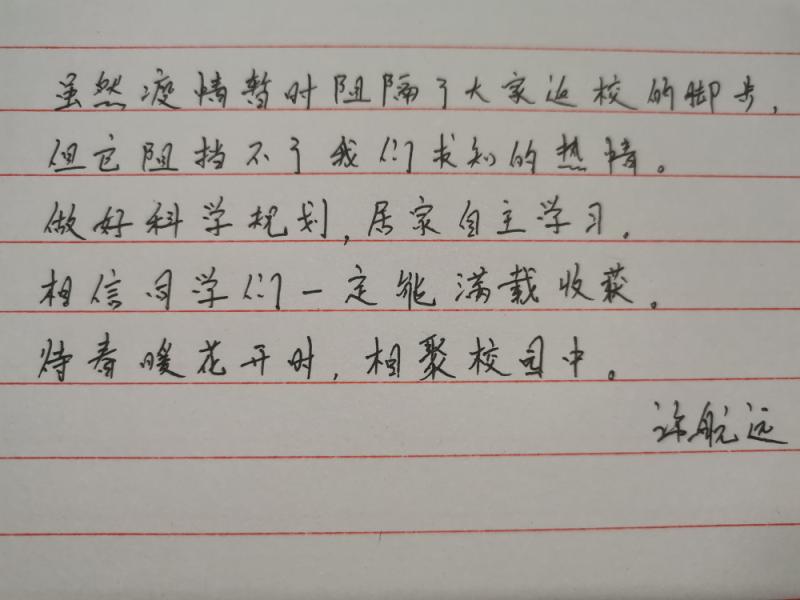 虽然疫情暂时阻隔了大家返校的脚步，
但它阻挡不了我们求知的热情。
做好科学规划，居家自主学习。
相信同学们一定能满载收获。
待春暖花开时，相聚校园中。
许航远